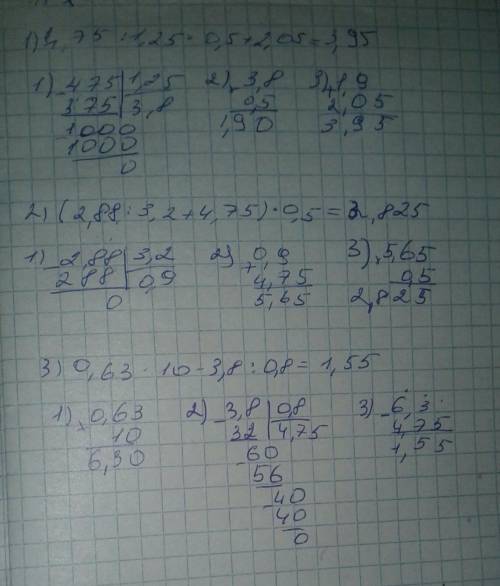 1) 4,75 : 1,25 · 0,5 + 2,05 = 3,95
1) 475 | 1,25 2) 3,8 3) 1,9
375 | 3,8 0,5 2,05
1000 1,90 3,95
1000
0
2) (2,88 : 3,2 + 4,75) · 0,5 = 2,825
1) 2,88 | 3,2 2) 0,9 3) 5,65
288 | 0,9 + 4,75 0,5
0 5,65 2,825
3) 0,63 · 10 - 3,8 : 0,8 = 1,55
1) 0,63 2) 3,8 | 0,8 3) 6,3
10 32 | 4,75 4,75
6,30 60 1,55
56
40
40
0